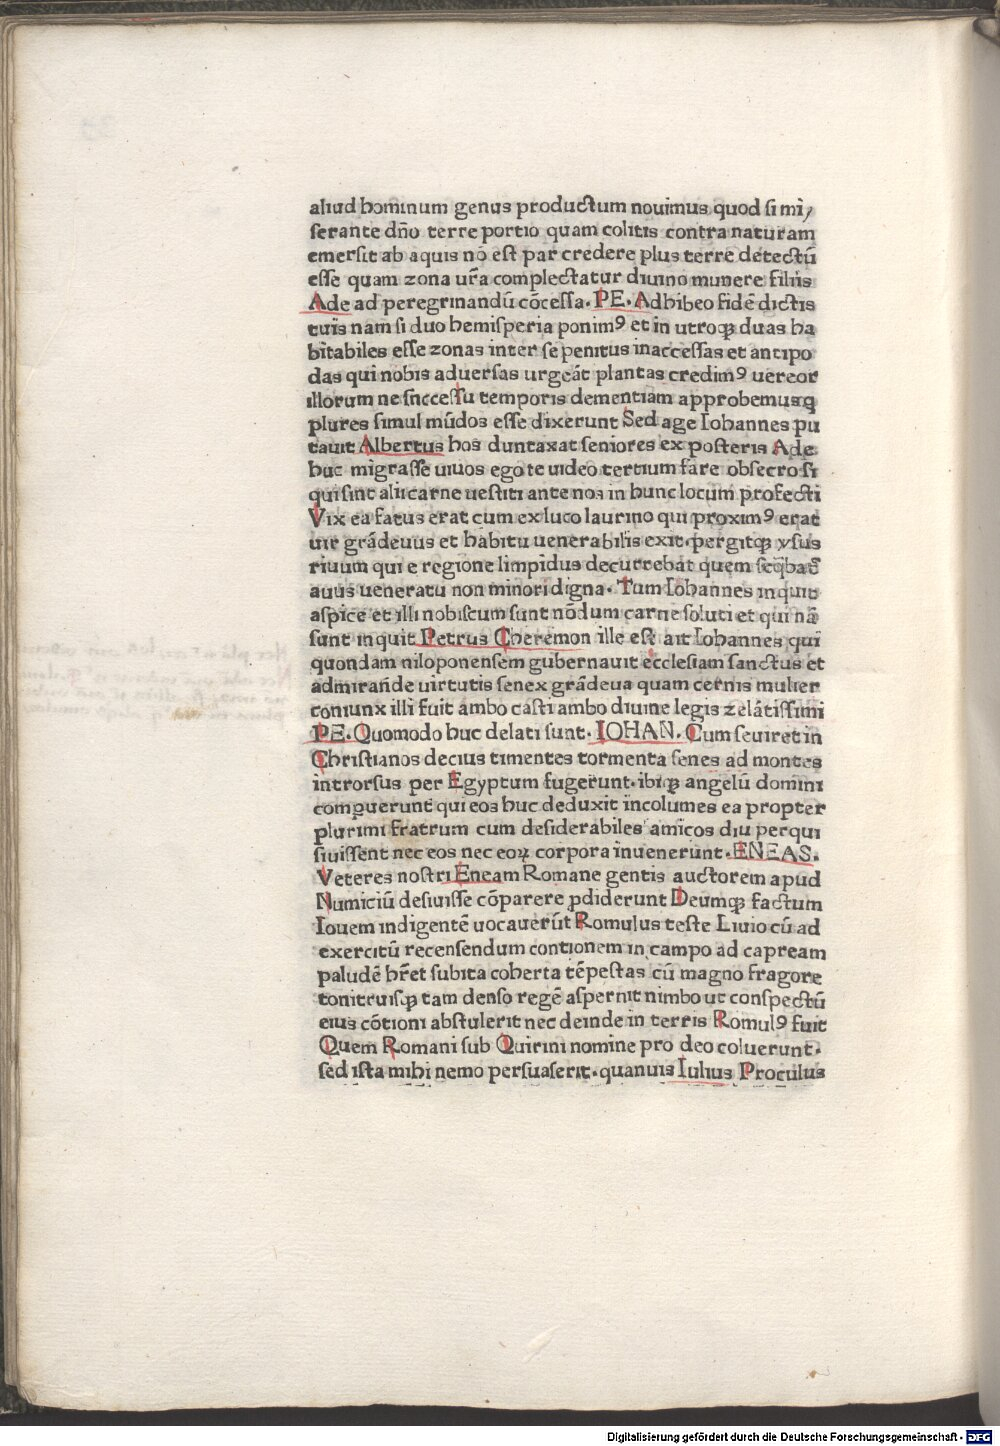 aliud hominum genus productum nouimus quod si mi/
serante dño terre portio quam colitis contra naturam
emersit ab aquis nō est par credere plus terre detectū
esse quam zona ur̃a complectatur diuino munere filiis
Ade ad peregrinandū cōcessa. PE. Adhibeo fidē dictis
tuis nam si duo hemisperia ponimꝰ et in utroqꝫ duas ha
bitabiles esse zonas inter se penitus inaccessas et antipo
das qui nobis aduersas urgeāt plantas credimꝰ uereor
illorum ne snccessu temporis dementiam approbemusq
plures simul mūdos esse dixerunt Sed age Iohannes pu
tauit Albertus hos duntaxat seniores ex posteris Ade
huc migrasse uiuos ego te uideo tertium fare obsecro si
qui sint alii carne uestiti ante nos in hunc locum profecti
Vix ea fatus erat cum ex luco laurino qui proximꝰ erat
uir grādeuus et habitu uenerabilis exit. pergitqꝫ ysus
riuum qui e regione limpidus decurrebat quem seq̄bat̄
auus ueneratu non minori digna. Tum Iohannes inquit
aspice et illi nobiscum sunt nōdum carne soluti et qui nā
sunt inquit Petrus Cheremon ille est ait Iohannes qui
quondam niloponensem gubernauit ecclesiam sanctus et
admirande uirtutis senex grādeua quam cernis mulier
coniunx illi fuit ambo casti ambo diuine legis zelātissimi
PE. Quomodo huc delati sunt. IOHAN. Cum seuiret in
Christianos decius timentes tormenta senes ad montes
introrsus per Egyptum fugerunt. ibiqꝫ angelū domini
comꝑuerunt qui eos huc deduxit incolumes ea propter
plurimi fratrum cum desiderabiles amicos diu perqui
siuissent nec eos nec eoꝝ corpora inuenerunt. ENEAS.
Veteres nostri Eneam Romane gentis auctorem apud
Numiciū desiuisse cōparere ꝓdiderunt Deumqꝫ factum
Iouem indigentē uocauerūt Romulus teste Liuio cū ad
exercitū recensendum contionem in campo ad capream
paludē hr̄et subita coherta tēpestas cū magno fragore
tonitruisqꝫ tam denso regē aspernit nimbo ut conspectū
eius cōtioni abstulerit nec deinde in terris Romulꝰ fuit
Quem Romani sub Quirini nomine pro deo coluerunt.
sed ista mihi nemo persuaserit. quanuis Iulius Proculus
Digitalisierung gefördert durch die Deutsche Forschungsgemeinschaft - DFG